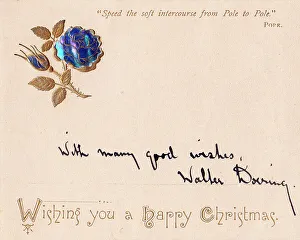 "Speed the soft intercourse from Pole to Pole."
POPE.
With many good wishes,
Walter Doering.
Wishing you a happy Christmas.